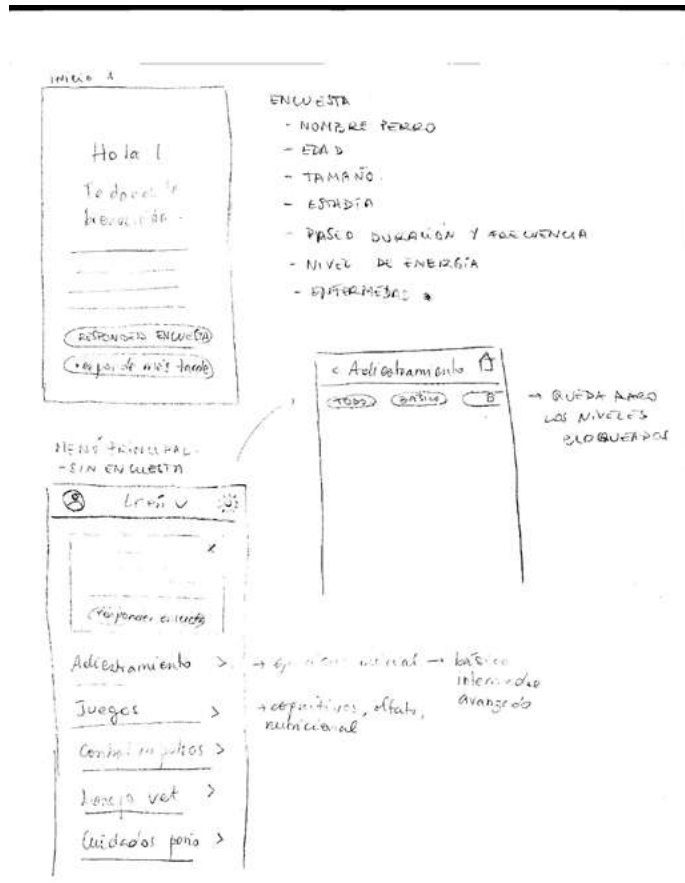 INICIO 1
Hola!
Te damos la
bienvenida.
RESPONDER ENCUESTA
Responder más tarde
ENCUESTA
- NOMBRE PERRO
- EDAD
- TAMAÑO.
- ESTADÍA
- PASEO DURACIÓN Y FRECUENCIA
- NIVEL DE ENERGÍA
- ENFERMEDAD *
< Adiestramiento
TODO BÁSICO
→ QUEDA
LOS NIVELES
BLOQUEADOS
MENÚ PRINCIPAL.
- SIN ENCUESTA
x
Responder encuesta
Adiestramiento >
→ → básico
intermedio
avanzado
Juegos >
→ cognitivos, olfato,
nutricional
Control impulsos >
vet >
Cuidados >